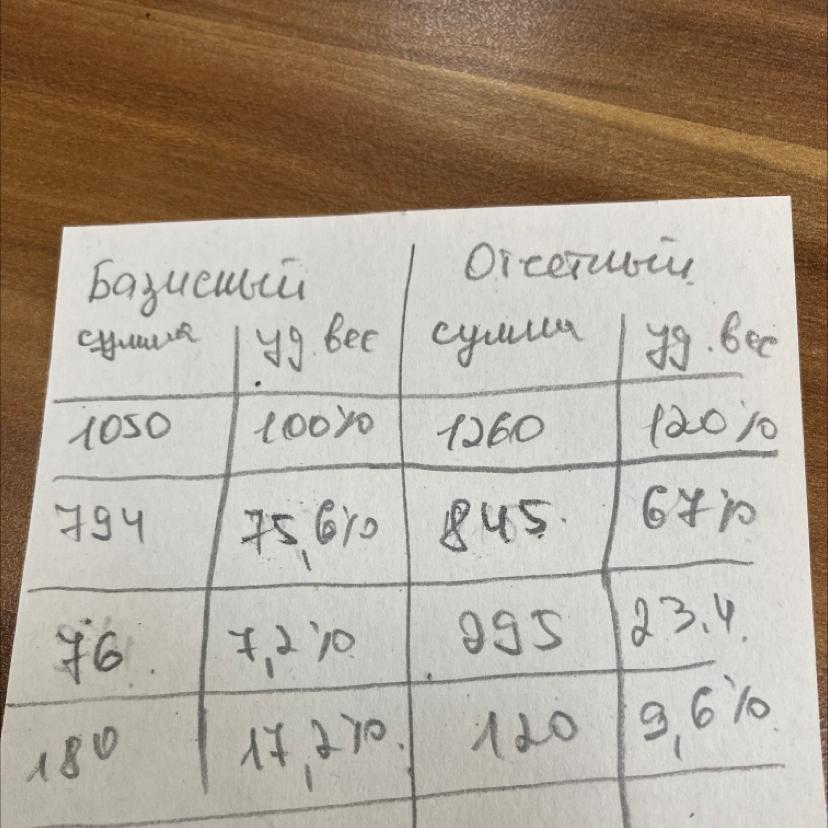 Базисный Отчетный
сумма уд. вес сумма уд. вес
1050 100% 1260 120%
794 75,6% 845. 67%
76. 7,2% 295 23.4.
180 17,2%. 120 9,6%